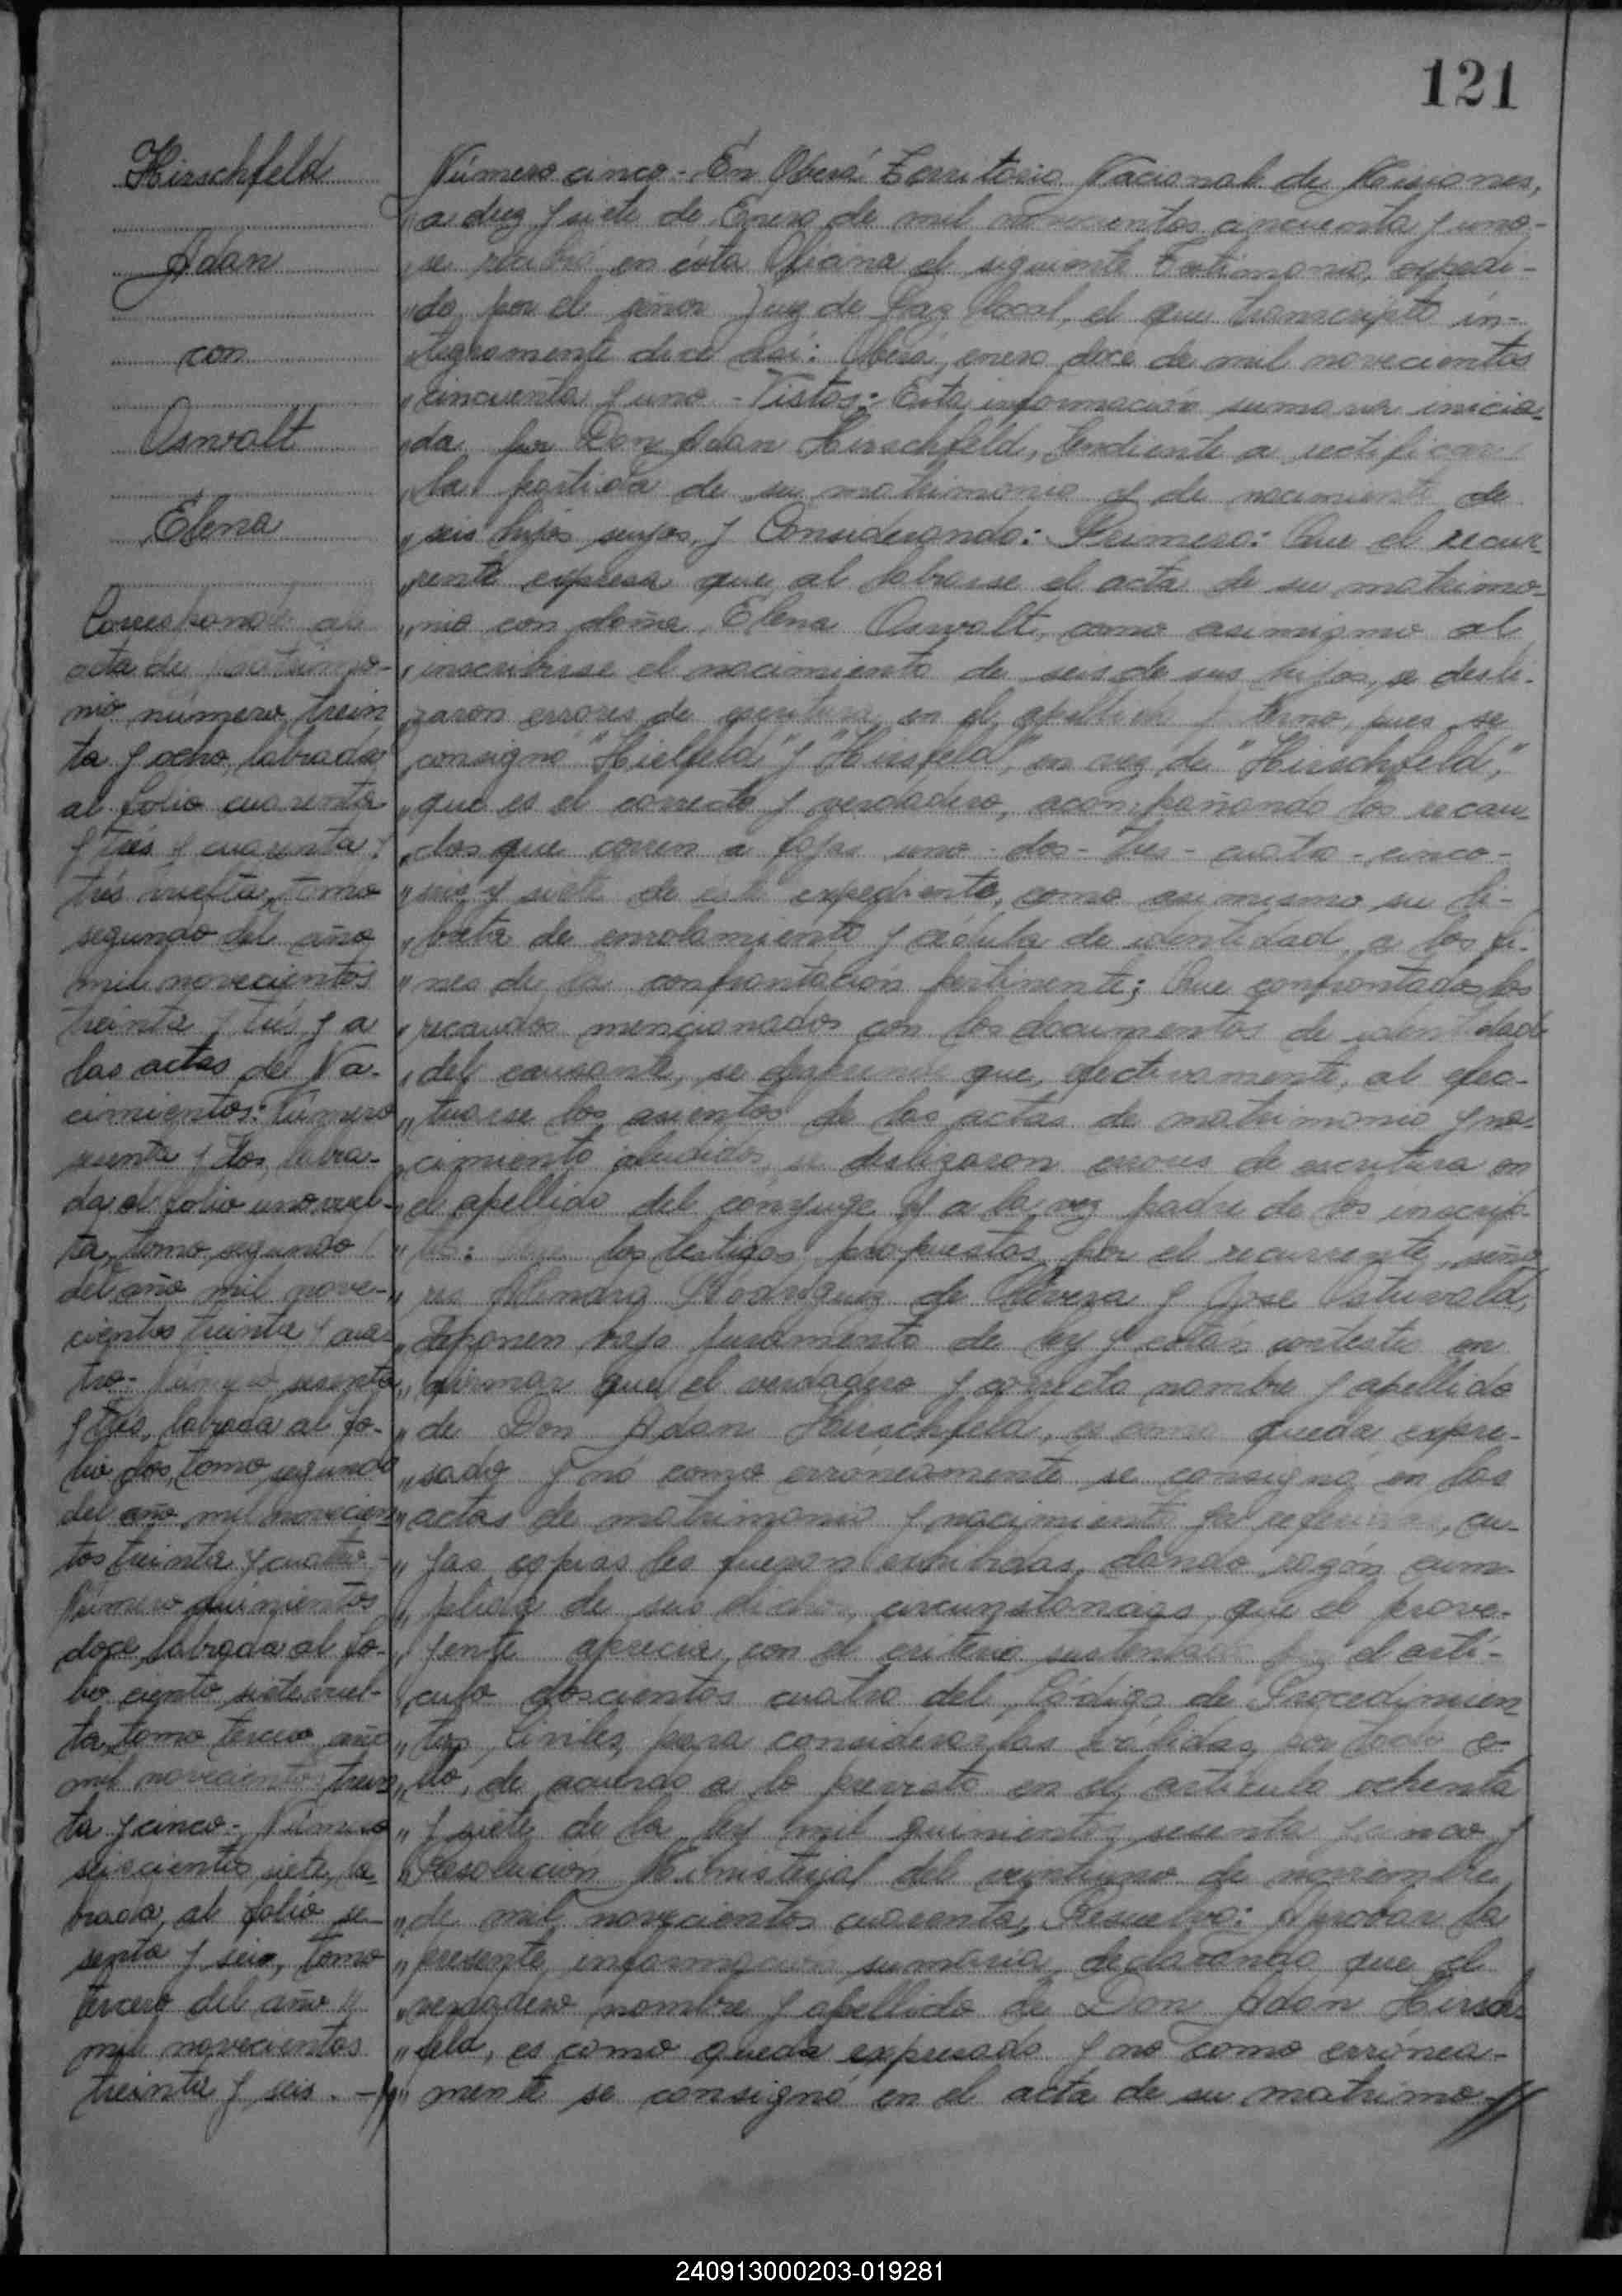 121
Hirschfeld
Adan
con
Oswalt
Elena
Corresponde al
acta de matrimo-
nio número trein
ta y ocho, labrada
al folio cuarenta
y trés y cuarenta y
trés vuelta, tomo
segundo del año
mil novecientos
treinta y trés y a
las actas de Na-
cimientos: Número
sesenta y dos, labra-
da al folio uno vuel-
ta, tomo segundo
del año mil nove-
cientos treinta y cua-
tro- Número sesenta
y trés, labrada al fo-
lio dos, tomo segundo
del año mil novecien-
tos treinta y cuatro-
Número quinientos
doce, labrada al fo-
lio ciento siete vuel-
ta, tomo tercero año
mil novecientos trein
ta y cinco- Número
seiscientos siete, la-
brada, al folio se-
senta y seis, tomo
tercero del año "
mil novecientos
treinta y seis. -//
Número cinco.- En Oberá Territorio Nacional de Misiones,
"a diez y siete de Enero de mil novecientos cincuenta y uno-
"se recibió en ésta Oficina el siguiente Testimonio, expedi-
"do por el señor Juez de Paz local, el que transcripto ín-
"tegramente dice así: Oberá, enero doce de mil novecientos
"cincuenta y uno - Vistos: Esta información sumaria inicia-
"da por Don Adan Hirschfeld, tendiente a rectificar
"la partida de su matrimonio y de nacimiento de
"seis hijos suyos, y Considerando: Primero: Que el recur-
"rente expresa que al labrarse el acta de su matrimo-
"nio con doña Elena Oswalt, como asimismo al
"inscribirse el nacimiento de seis de sus hijos, se desli-
"zaron errores de escritura en el apellido paterno, pues se
"consignó "Hielfeld" y "Hirsfeld", en vez de "Hirschfeld",
"que es el correcto y verdadero, acompañando los recau-
"dos que corren a fojas uno - dos - tres - cuatro - cinco -
"seis y siete de este expediente, como asi mismo su li-
"breta de enrolamiento y cédula de identidad, a los fi-
"nes de la confrontación pertinente; Que confrontados los
"recaudos mencionados con los documentos de identidad
"del causante, se desprende que, efectivamente, al efec-
"tuarse los asientos de las actas de matrimonio y na-
"cimiento aludidos, se deslizaron errores de escritura en
"el apellido del conyuge y a la vez padre de los inscrip-
"tos: Que los testigos propuestos por el recurrente, seño-
"res Rodriguez de Olivera y José
"deponen bajo juramento de ley y están contestes en
"afirmar que el verdadero y correcto nombre y apellido
"de Don Adan Hirschfeld, es como queda expre-
"sado y nó como erróneamente se consignó en las
"actas de matrimonio y nacimiento ya referidas, cu-
"yas copias les fueron exhibidas, dando razón cum-
"plida de sus dichos, circunstancias que el prove-
"yente aprecia con el criterio sustentado por el artí-
"culo doscientos cuatro del Código de Procedimien
"tos Civiles, para considerarlas válidas, por todo e-
"llo, de acuerdo a lo previsto en el artículo ochenta
"y siete de la ley mil quinientos sesenta y cinco y
"Resolución Ministerial del veintiuno de noviembre
"de mil novecientos cuarenta, Resuelvo: Aprobar la
"presente información sumaria, declarando que el
"verdadero nombre y apellido de Don Adan Hirsch-
"feld, es como queda expresado y no como errónea-
"mente se consignó en el acta de su matrimo-//
240913000203-019281